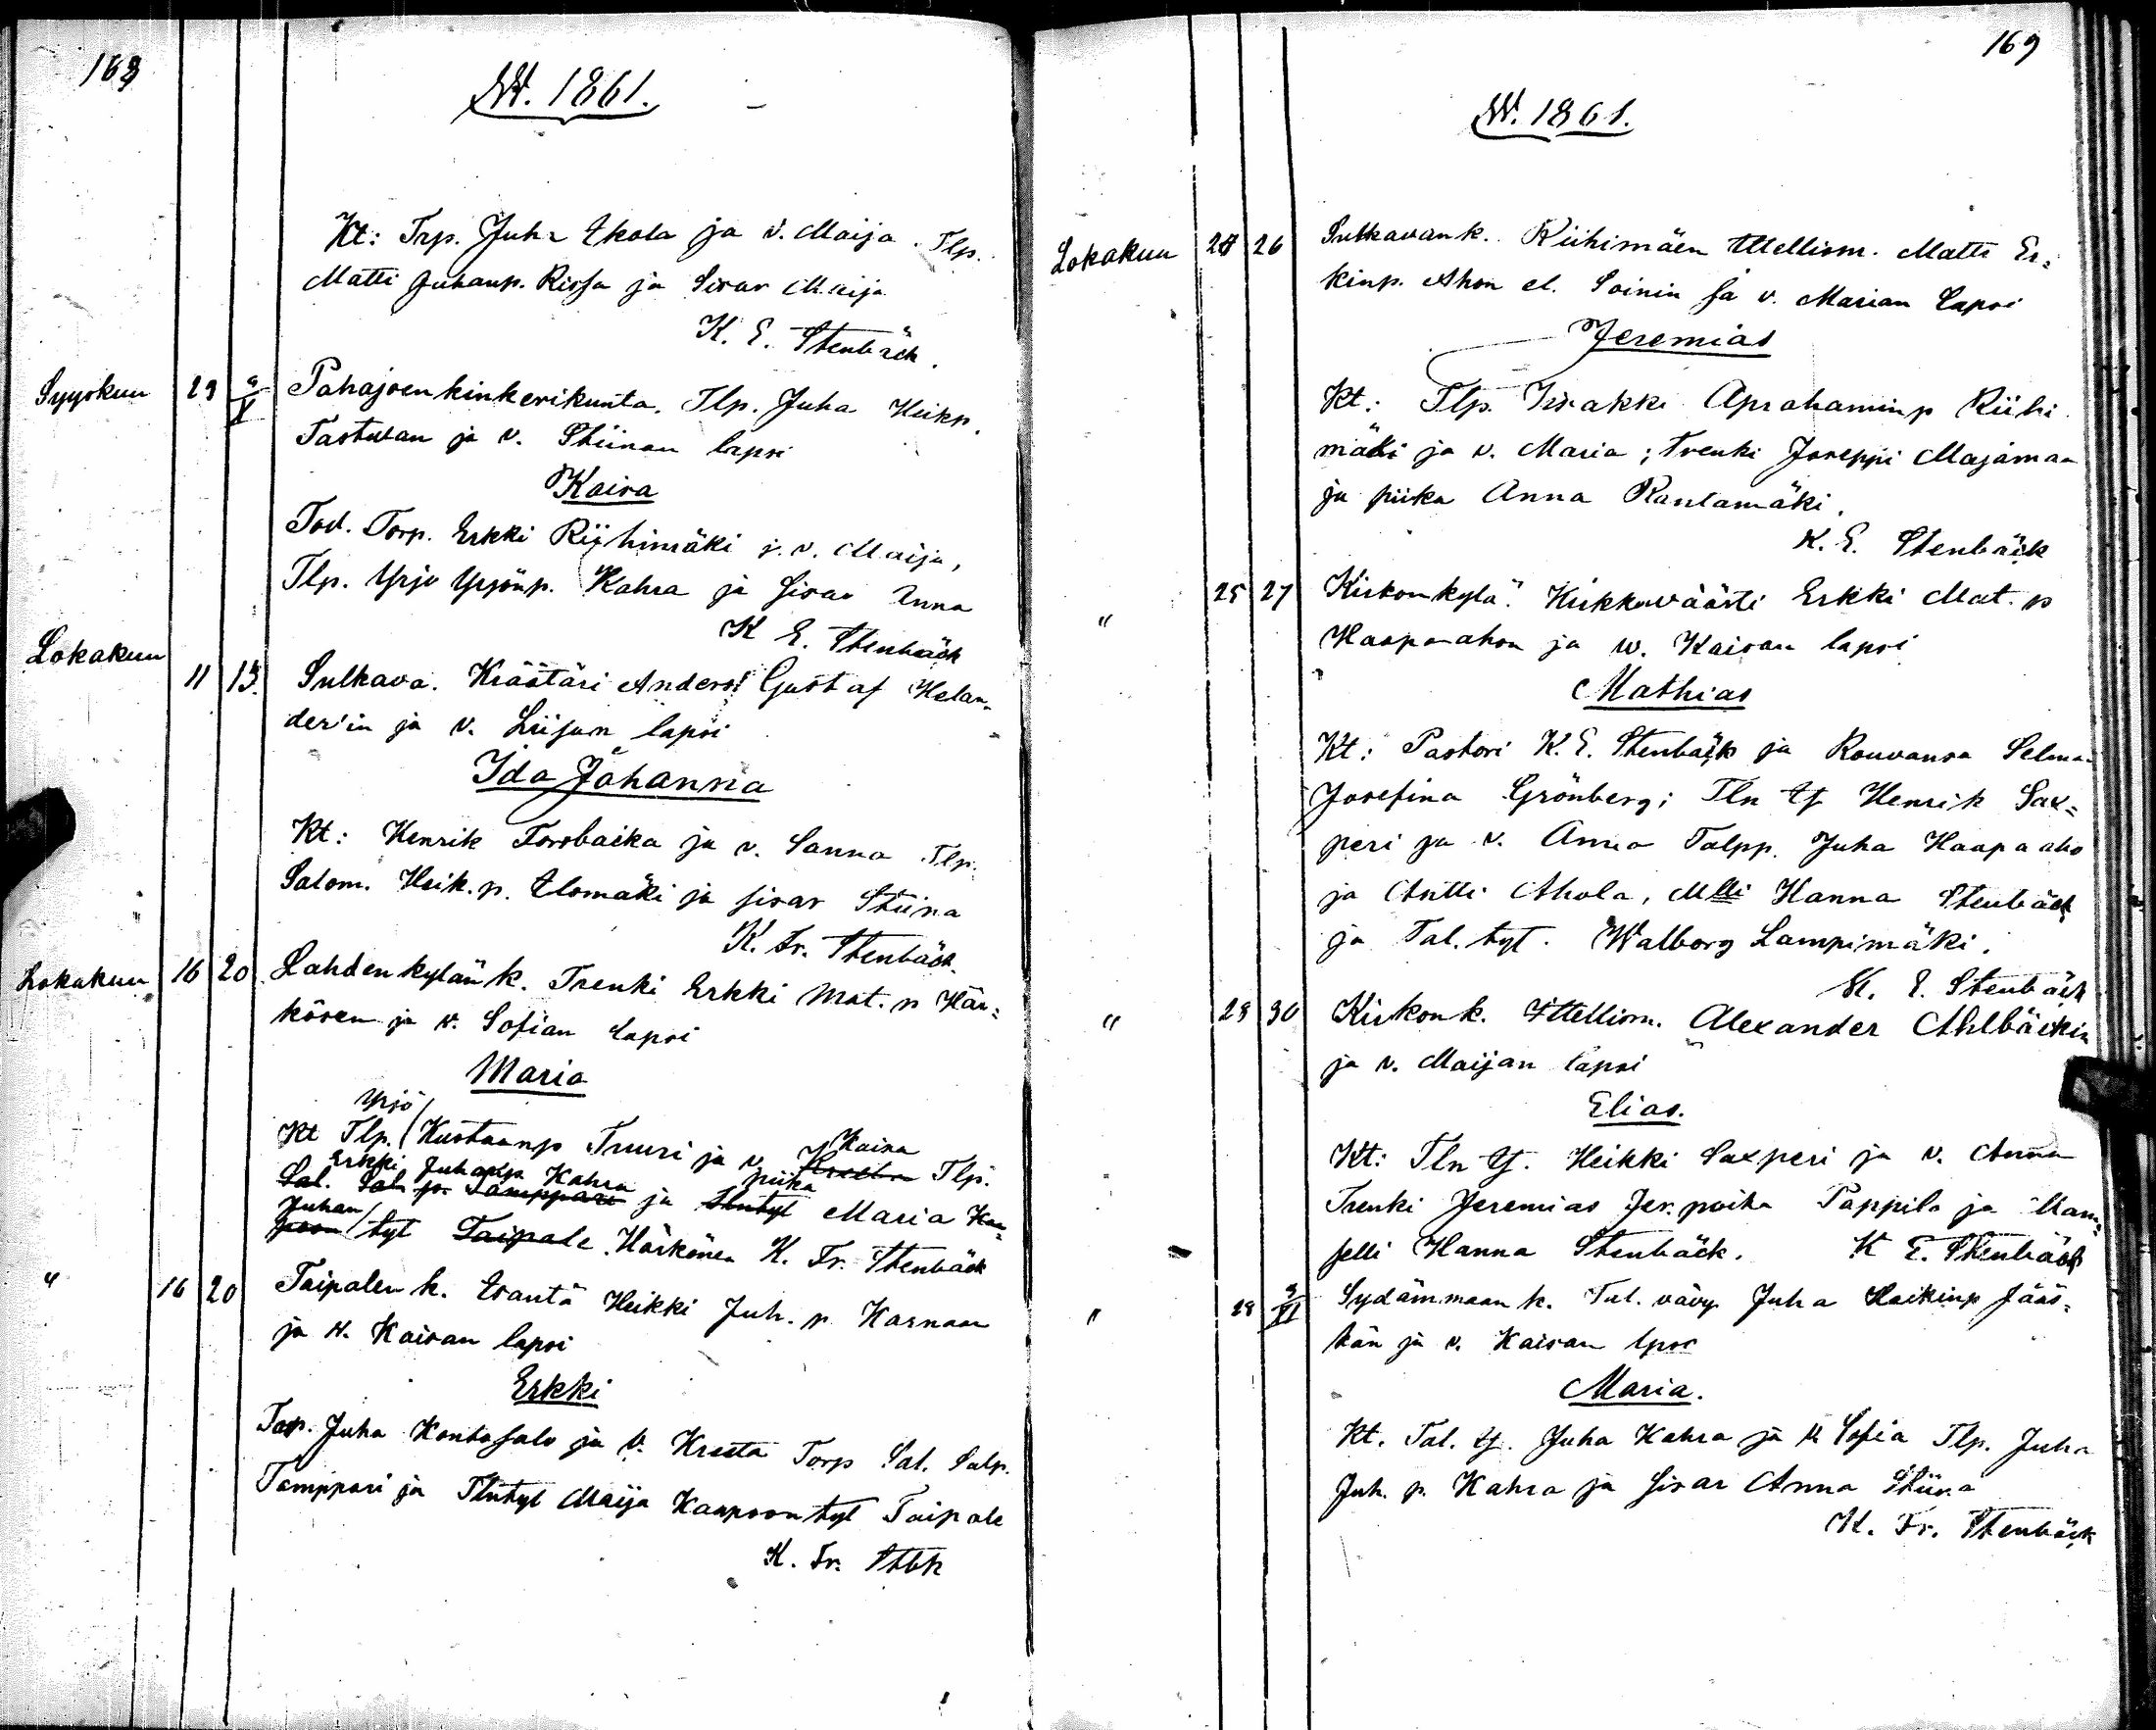 168
W. 1861.
Kt: Trp. Juha Ekola ja v. Maija. Tlp.
Matti Juhanp. Rissa ja Sisar Maija
K. E. Stenbäck.
Syyskuu 29 6/X Pahajoen kinkerikunta. Tlp. Juha Heikp.
Tastulan ja v. Stiinan lapsi
Kaisa
Tod. Torp. Erkki Riihimäki j. v. Maija,
Tlp. Yrjö Yrjönp. Kahra ja Sisar Anna
K E. Stenbäck
Lokakuu 11 13. Sulkava. Kräätäri Anders Gustaf Helan-
der'in ja v. Liisan lapsi
Ida Johanna
Kt: Henrik Forsbacka ja v. Sanna Tlp.
Salom. Heik. p. Elomäki ja sisar Stiina
K. Fr. Stenbäck.
Lokakuu 16 20 Lahdenkylän k. Trenki Erkki Mat. p Här-
kösen ja v. Sofian lapsi
Maria
Yrjö
Kt Tlp. Kustaanp Truuri ja v. Kaisa Tlp.
Erkki Juhanp Kahra piika
Sal. Sal. p. Tamppari ja Tlntyt Maria Kaa-
Juhan
poon tyt Taipale Härkönen K. Fr. Stenbäck
" 16 20 Taipalen k. Isäntä Heikki Juh. p Karnaan
ja v. Kaisan lapsi
Erkki
Torp. Juha Kontosalo ja v. Kreeta Torp Sal. Salp.
Tamppari ja Tlntyt Maija Kaapoon tyt Taipale
K. Fr. Stbk
169
W. 1861.
Lokakuu 24 26 Sulkavan k. Riihimäen Ittellism. Matti Er-
kinp. Ahon el. Soinin ja v. Marian lapsi
Jeremias
Kt: Tlp. Iisakki Aprahaminp Riihi
mäki ja v. Maria; trenki Joseppi Majamaa
ja piika Anna Rantamäki.
K. E. Stenbäck
" 25 27 Kirkonkylä. Kirkkoväärti Erkki Mat. p
Haapa-ahon ja w. Kaisan lapsi
Mathias
Kt: Pastori K. E. Stenbäck ja Rouvansa Selma
Josefina Grönberg; Tln Ij Henrik Sax-
peri ja v. Anna Talpp. Juha Haapa aho
ja Antti Ahola, Mlli Hanna Stenbäck
ja Tal. tyt. Walborg Lampimäki.
K. E. Stenbäck
" 29 30 Kirkon k. Ittellism. Alexander Ahlbäckin
ja v. Maijan lapsi
Elias.
Kt: Tln Ij. Heikki Saxperi ja v. Anna
Trenki Jeremias Jer. poika Pappila ja Mam-
selli Hanna Stenbäck. K E. Stenbäck
" 29 3/XI Sydänmaan k. Tal. vävy Juha Heikinp Jääs-
kän ja v. Kaisan lpsi
Maria.
Kt. Tal. Ij. Juha Kahra ja v Sofia Tlp. Juha
Juh. p. Kahra ja Sisar Anna Stiina
K. Fr. Stenbäck